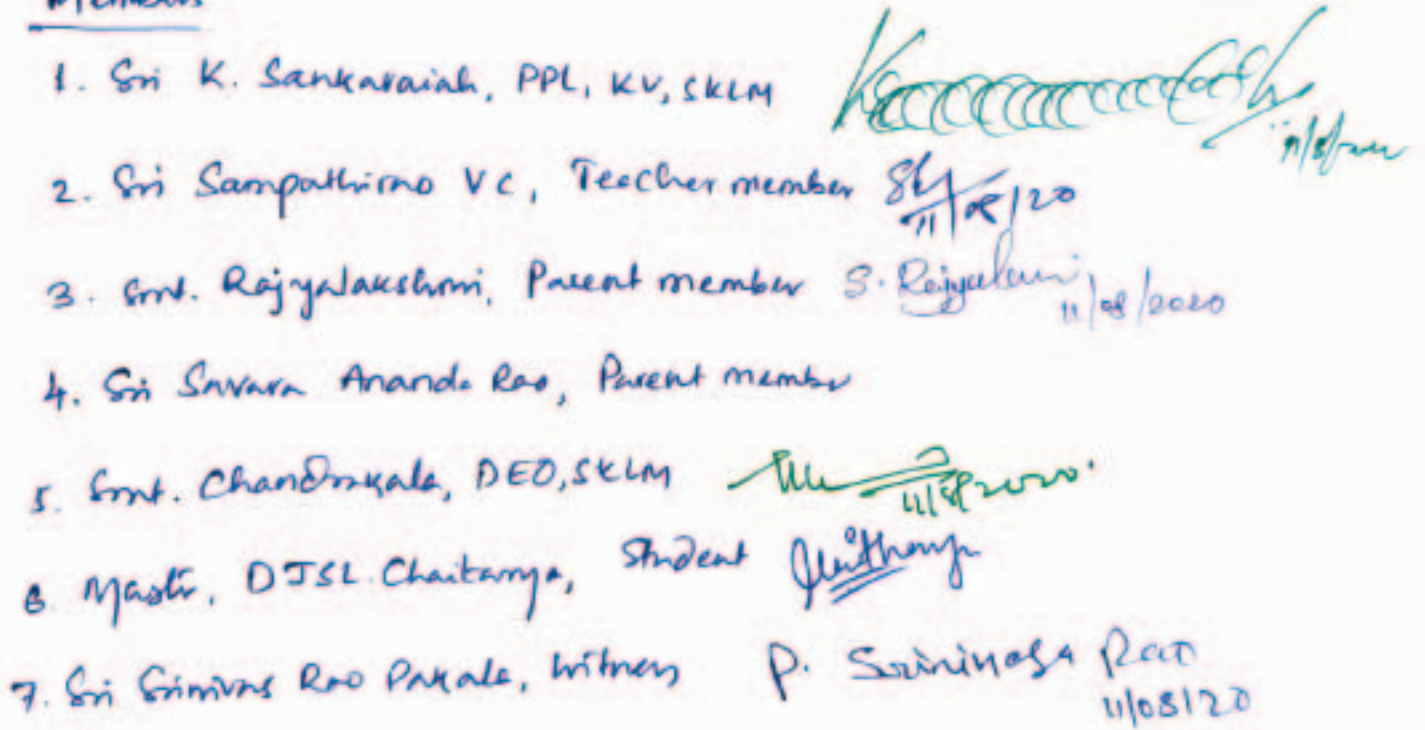 Members
1. Sri K. Sankaraiah, PPL, KV, SKLM
2. Sri Sampathirao VC, Teacher member 11/08/20
3. Smt. Rajyalakshmi, Parent member S. 11/08/2020
4. Sri Savara Ananda Rao, Parent member
5. Smt. Chandrakala, DEO, SKLM 11/8/2020.
6 Mastr, DJSL. Chaitanya, Student
7. Sri Srinivas Rao Pakala, Witness P. Srinivasa Rao
11/08/20